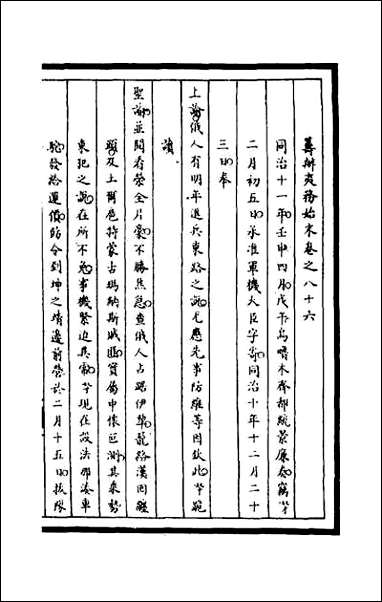 籌辦夷務始末卷之八十六
同治十一年壬申四月戊午烏嚕木齊都統景廉奏竊
二月初五日承准軍機大臣字寄同治十年十二月二十
三日奉
上諭俄人有明年進兵東路之說尤應先事防維等因欽此
讀
聖諭並閱看榮全片稟不勝焦急查俄人占踞伊犂籠絡漢回
及土爾扈特蒙古瑪納斯賊匪實屬中懷叵測其乘勢
東犯之說在所不免事機緊迫異常 現在設法那湊車
駝發給運價飭令到坤之靖邊前營於二月十五日拔隊